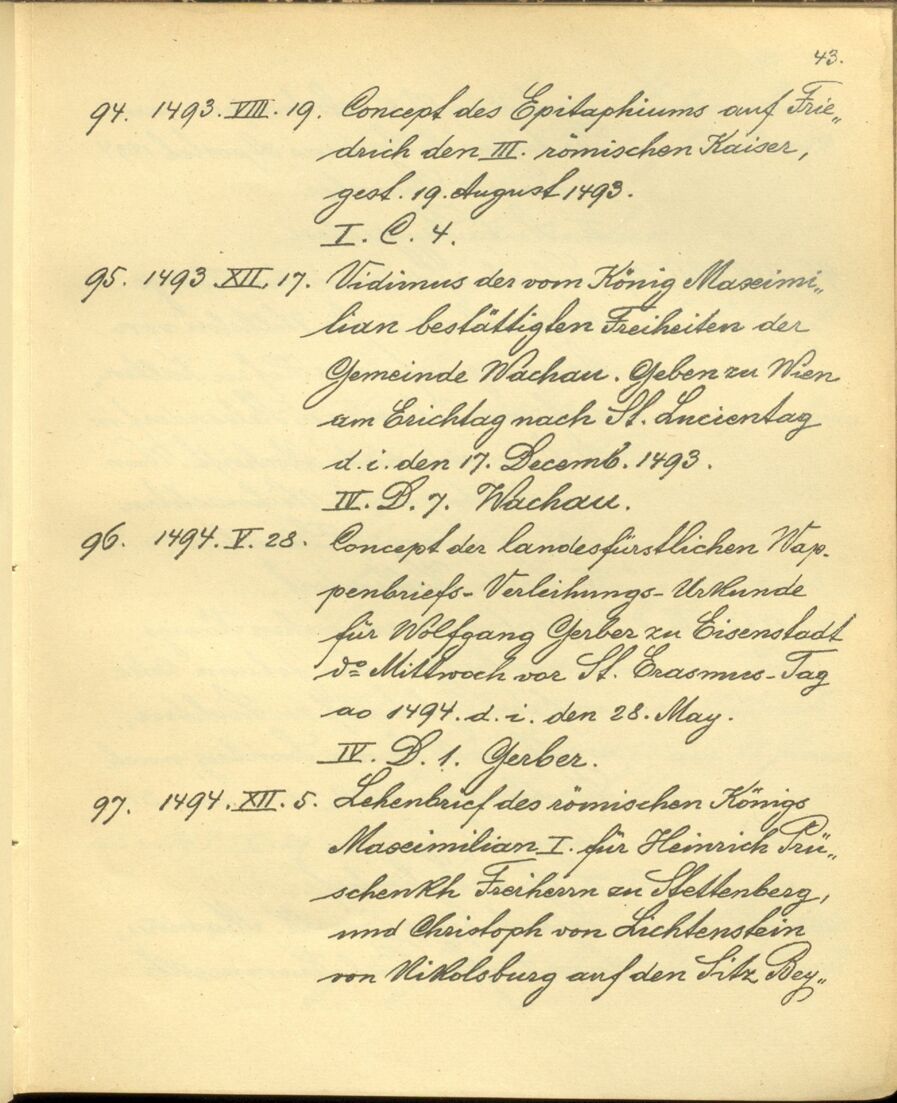 43.
94. 1493. VIII. 19. Concept des Epitaphiums auf Frie„
drich den III. römischen Kaiser,
gest. 19. August 1493.
I. C. 4.
95. 1493. XII. 17. Vidimus der vom König Maximi„
lian bestättigten Freiheiten der
Gemeinde Wachau. Geben zu Wien
am Erichtag nach St. Lucientag
d. i. den 17. Decemb. 1493.
IV. D. 7. Wachau.
96. 1494. V. 28. Concept der landesfürstlichen Wap-
penbriefs-Verleihungs-Urkunde
für Wolfgang Gerber zu Eisenstadt
dº Mittwoch vor St. Erasmus-Tag
ao 1494. d. i. den 28. May.
IV. D. 1. Gerber.
97. 1494. XII. 5. Lehenbrief des römischen Königs
Maximilian I. für Heinrich Prü„
schenkh Freiherrn zu Stettenberg,
und Christoph von Lichtenstein
von Nikolsburg auf den Sitz Bey„